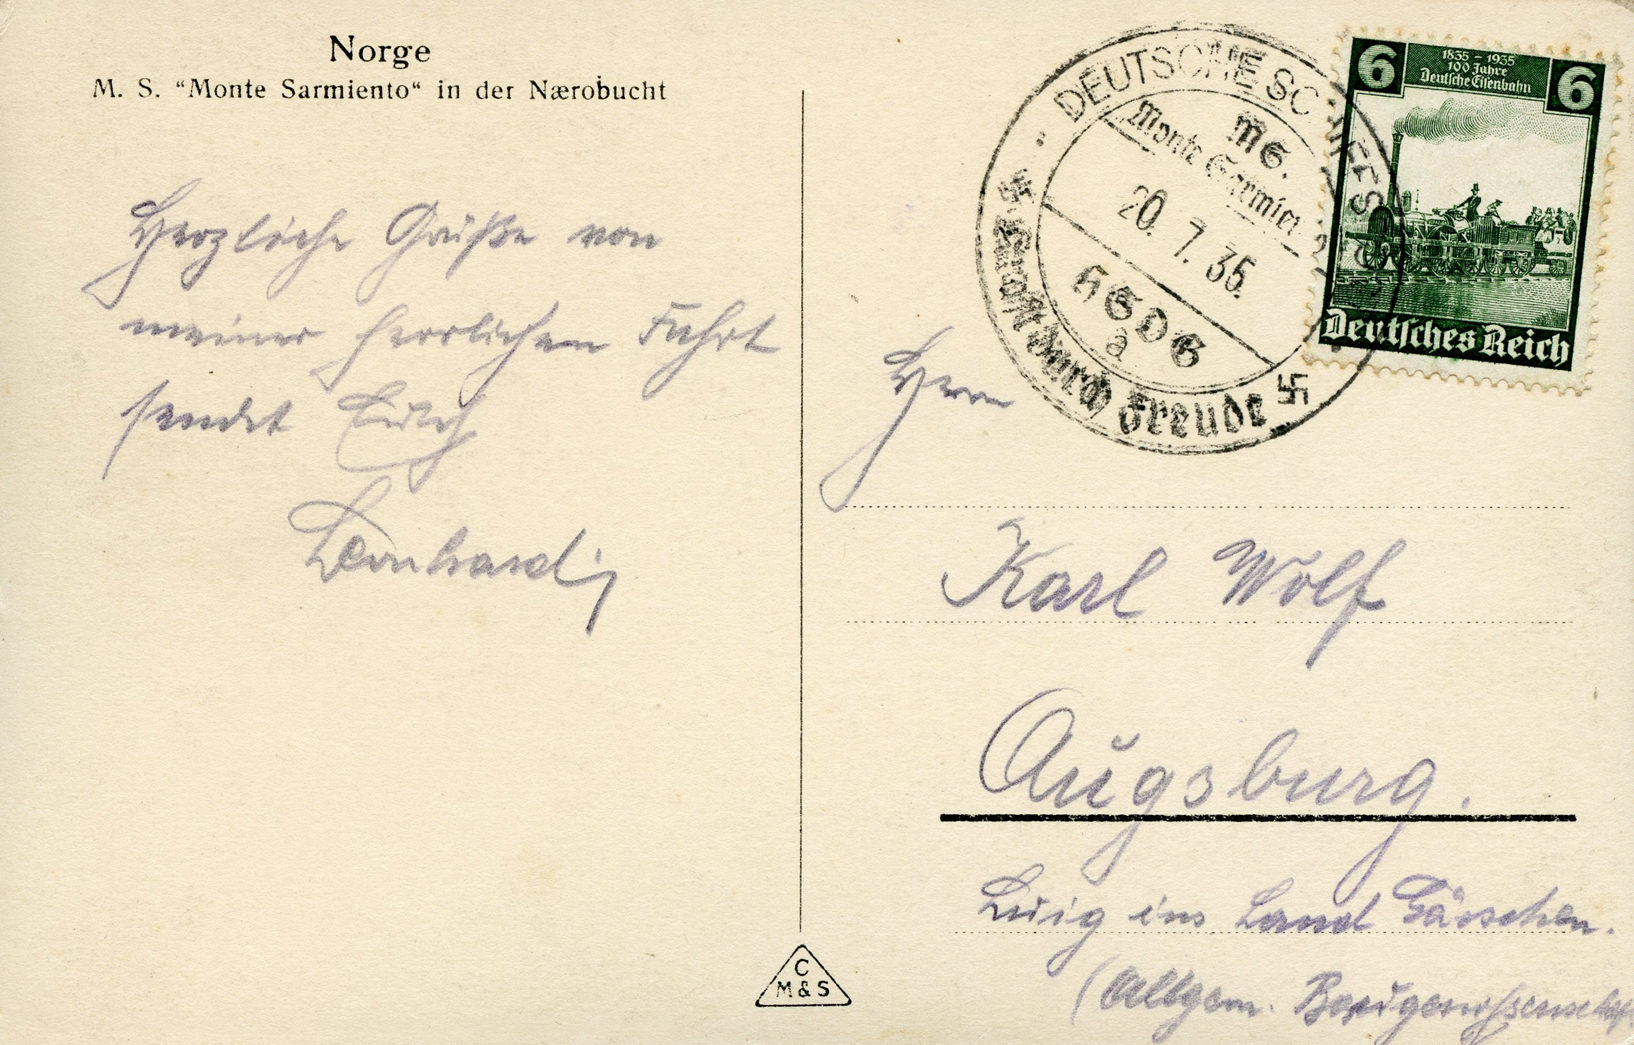 Norge
M. S. "Monte Sarmiento“ in der Nærobucht
Herzliche Grüße von
meiner herrlichen Fahrt
sendet Euch
Bernhard
DEUTSCHE SC IFFSPO
MS.
Monte Sarmien
20. 7. 35.
HSDG
a
卐 Kraft durch Freude 卐
6 1835 - 1935 6
100 Jahre
Deutsche Eisenbahn
Deutsches Reich
Herrn
Karl Wolf
Augsburg.
ins Land
(Allgem. Baugenossenschaft
C
M & S